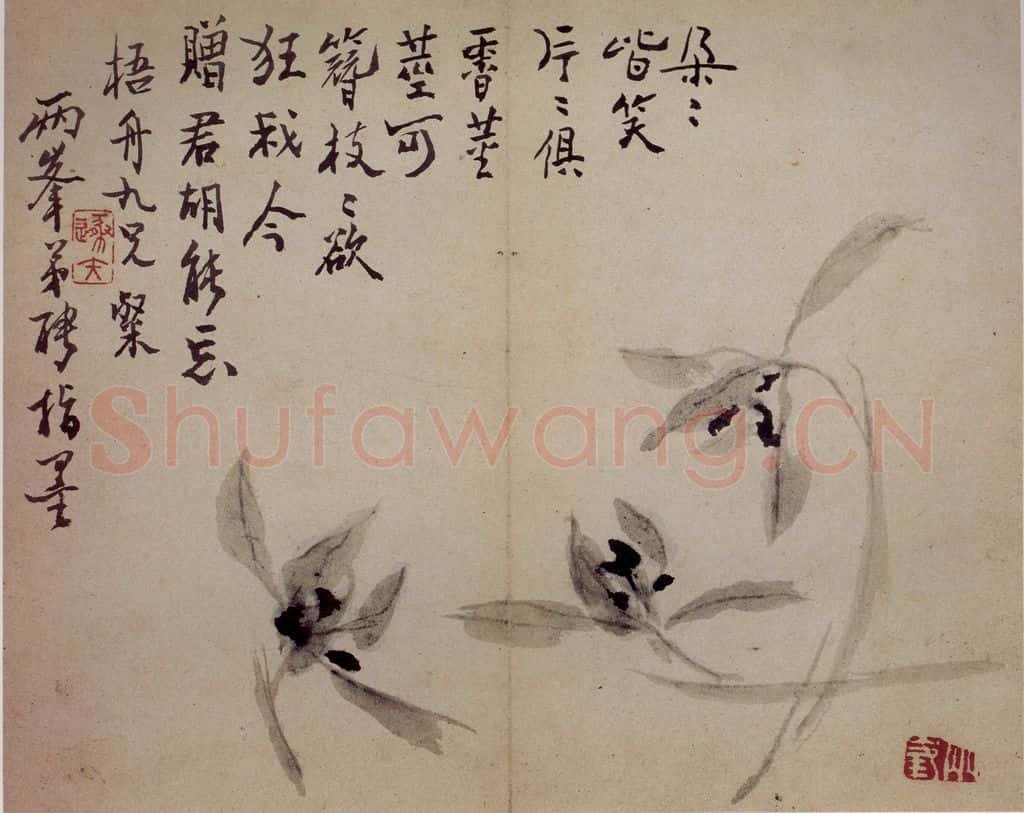 朵〻
皆笑
片〻俱
香莖
莖可
簪枝〻欲
狂我今
贈君胡能忘
梧舟九兄粲
兩峯弟聘指墨
遯夫
Shufawang.CN